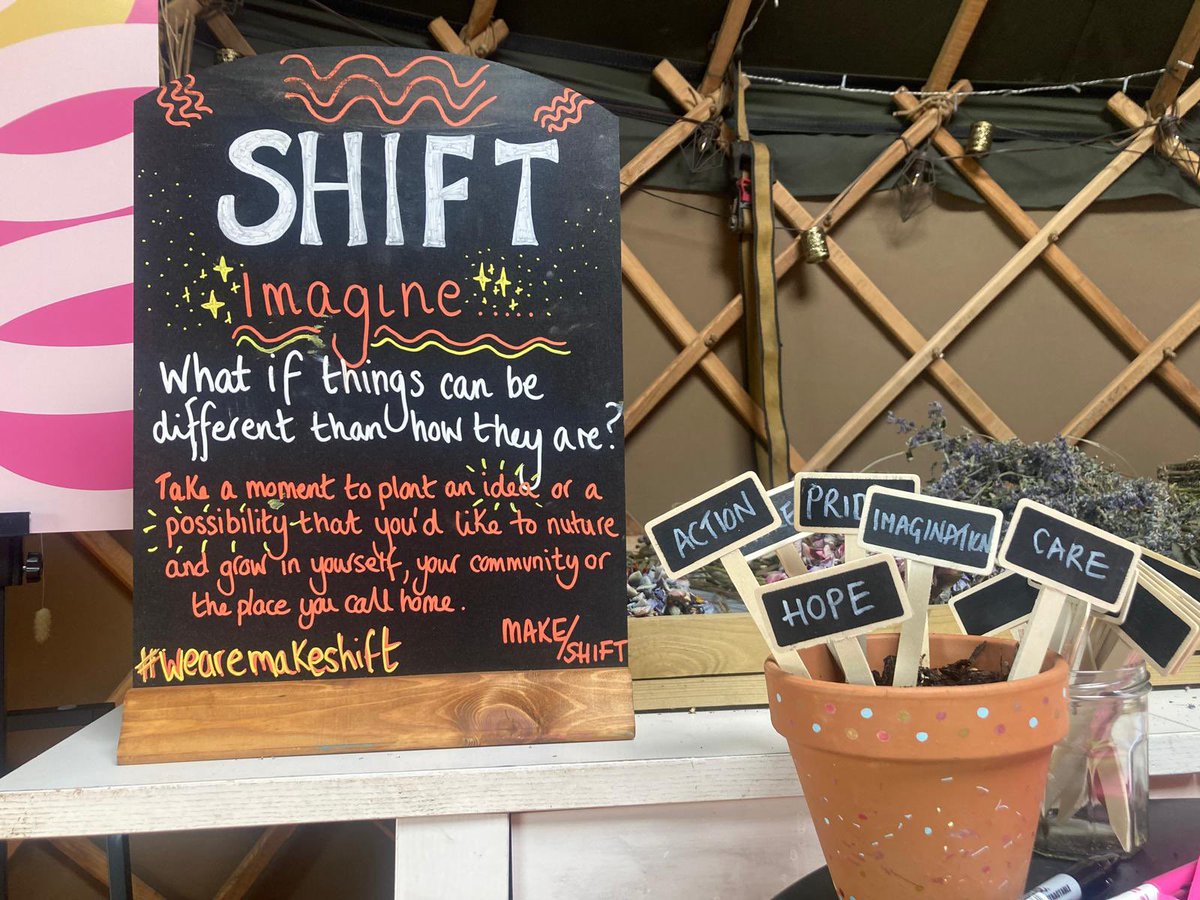 SHIFT
Imagine.....
What if things can be
different than how they are?
Take a moment to plant an idea or a
possibility that you'd like to nuture
and grow in yourself, your community or
the place you call home.
#wearemakeshift
MAKE/
SHIFT
ACTION
PRID
IMAGINATION
CARE
HOPE